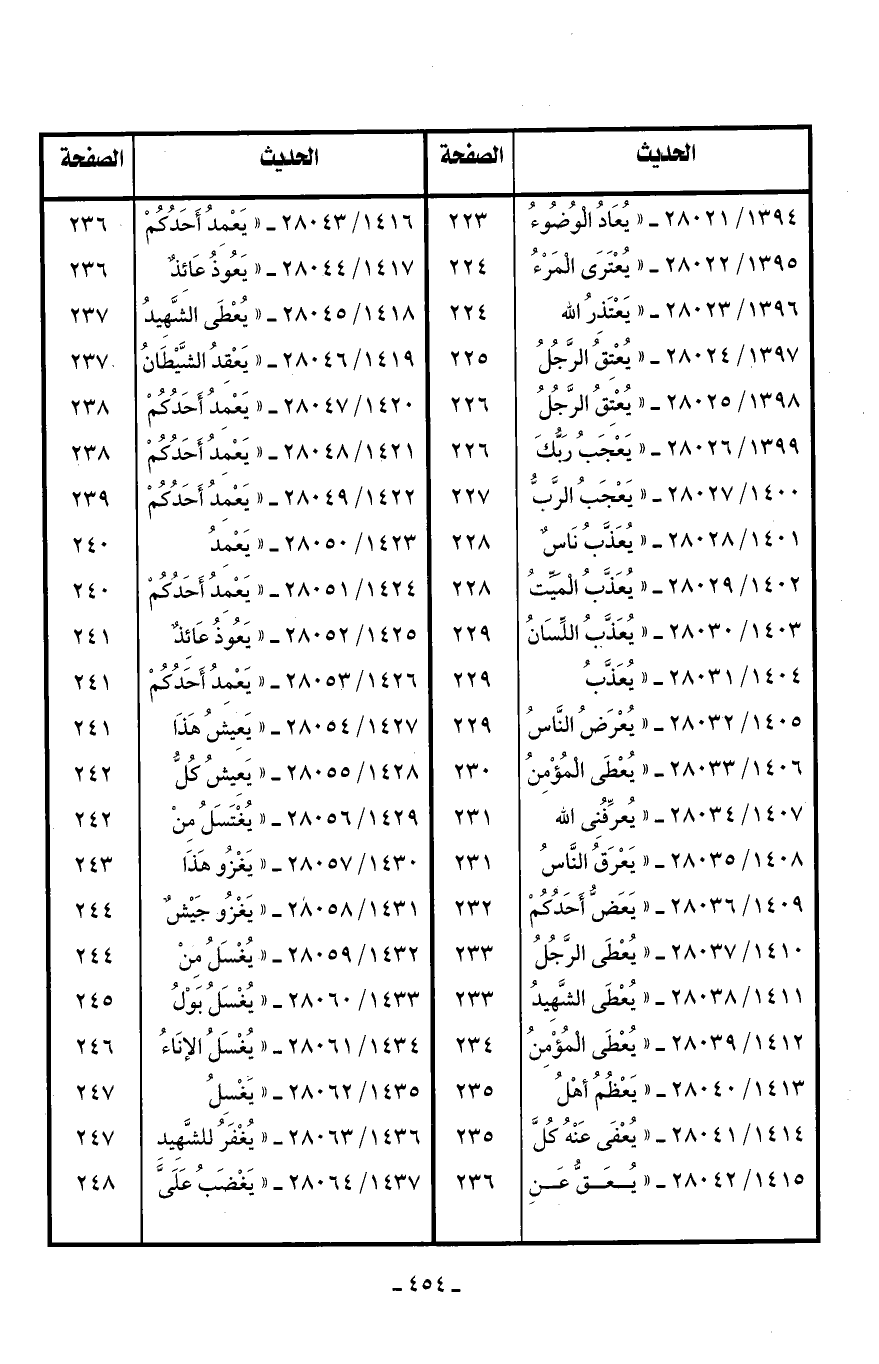 الحديث الصفحة الحديث الصفحة
١٣٩٤/ ٢٨٠٢١ ـ « يُعَادُ الْوُضُوءُ ٢٢٣ ١٤١٦/ ٢٨٠٤٣ ـ « يَعْمِدُ أَحَدُكُمْ ٢٣٦
١٣٩٥/ ٢٨٠٢٢ ـ « يُعْتَرَى الْمَرْءُ ٢٢٤ ١٤١٧/ ٢٨٠٤٤ ـ « يَعُوذُ عَائِذٌ ٢٣٦
١٣٩٦/ ٢٨٠٢٣ ـ « يَعْتَذِرُ الله ٢٢٤ ١٤١٨/ ٢٨٠٤٥ ـ « يُعْطَى الشَّهِيدُ ٢٣٧
١٣٩٧/ ٢٨٠٢٤ ـ « يُعْتِقُ الرَّجُلُ ٢٢٥ ١٤١٩/ ٢٨٠٤٦ ـ « يَعْقِدُ الشَّيْطَانُ ٢٣٧
١٣٩٨/ ٢٨٠٢٥ ـ « يُعْتِقُ الرَّجُلُ ٢٢٦ ١٤٢٠/ ٢٨٠٤٧ ـ « يَعْمِدُ أَحَدُكُمْ ٢٣٨
١٣٩٩/ ٢٨٠٢٦ ـ « يَعْجَبُ رَبُّكَ ٢٢٦ ١٤٢١/ ٢٨٠٤٨ ـ « يَعْمِدُ أَحَدُكُمْ ٢٣٨
١٤٠٠/ ٢٨٠٢٧ ـ « يَعْجَبُ الرَّبُّ ٢٢٧ ١٤٢٢/ ٢٨٠٤٩ ـ « يَعْمِدُ أَحَدُكُمْ ٢٣٩
١٤٠١/ ٢٨٠٢٨ ـ « يُعَذَّبُ نَاسٌ ٢٢٨ ١٤٢٣/ ٢٨٠٥٠ ـ « يَعْمِدُ ٢٤٠
١٤٠٢/ ٢٨٠٢٩ ـ « يُعَذَّبُ الْمَيِّتُ ٢٢٨ ١٤٢٤/ ٢٨٠٥١ ـ « يَعْمِدُ أَحَدُكُمْ ٢٤٠
١٤٠٣/ ٢٨٠٣٠ ـ « يُعَذَّبُ اللِّسَانُ ٢٢٩ ١٤٢٥/ ٢٨٠٥٢ ـ « يَعُوذُ عَائِذٌ ٢٤١
١٤٠٤/ ٢٨٠٣١ ـ « يُعَذَّبُ ٢٢٩ ١٤٢٦/ ٢٨٠٥٣ ـ « يَعْمِدُ أَحَدُكُمْ ٢٤١
١٤٠٥/ ٢٨٠٣٢ ـ « يُعْرَضُ النَّاسُ ٢٢٩ ١٤٢٧/ ٢٨٠٥٤ ـ « يَعِيشُ هَذَا ٢٤١
١٤٠٦/ ٢٨٠٣٣ ـ « يُعْطَى الْمُؤْمِنُ ٢٣٠ ١٤٢٨/ ٢٨٠٥٥ ـ « يَعِيشُ كُلُّ ٢٤٢
١٤٠٧/ ٢٨٠٣٤ ـ « يُعرِّفُنِى الله ٢٣١ ١٤٢٩/ ٢٨٠٥٦ ـ « يُغْتَسَلُ مِنْ ٢٤٢
١٤٠٨/ ٢٨٠٣٥ ـ « يَعْرَقُ النَّاسُ ٢٣١ ١٤٣٠/ ٢٨٠٥٧ ـ « يَغْزُو هَذَا ٢٤٣
١٤٠٩/ ٢٨٠٣٦ ـ « يَعَضُّ أَحَدُكُمْ ٢٣٢ ١٤٣١/ ٢٨٠٥٨ ـ « يَغْزُو جَيْشٌ ٢٤٤
١٤١٠/ ٢٨٠٣٧ ـ « يُعْطَى الرَّجُلُ ٢٣٣ ١٤٣٢/ ٢٨٠٥٩ ـ « يُغْسَلُ مِنْ ٢٤٤
١٤١١/ ٢٨٠٣٨ ـ « يُعْطَى الشَّهِيدُ ٢٣٣ ١٤٣٣/ ٢٨٠٦٠ ـ « يُغْسَلُ بَوْلُ ٢٤٥
١٤١٢/ ٢٨٠٣٩ ـ « يُعْطَى الْمُؤْمِنُ ٢٣٤ ١٤٣٤/ ٢٨٠٦١ ـ « يُغْسَلُ الإِنَاءُ ٢٤٦
١٤١٣/ ٢٨٠٤٠ ـ « يَعْظُمُ أَهْلُ ٢٣٥ ١٤٣٥/ ٢٨٠٦٢ ـ « يَغْسِلُ ٢٤٧
١٤١٤/ ٢٨٠٤١ ـ « يُعْفَى عَنْهُ كُلَّ ٢٣٥ ١٤٣٦/ ٢٨٠٦٣ ـ « يُغْفَرُ للشَّهِيدِ ٢٤٧
١٤١٥/ ٢٨٠٤٢ ـ « يُـعَـقُّ عَـنِ ٢٣٦ ١٤٣٧/ ٢٨٠٦٤ ـ « يَغْضَبُ عَلَىَّ ٢٤٨
ـ ٤٥٤ ـ